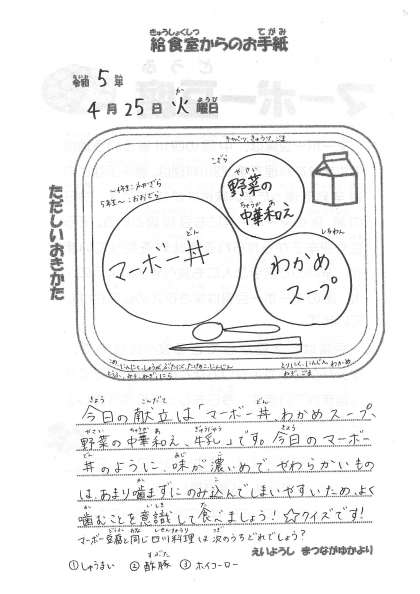 給食室からのお手紙
令和 5 年
4 月 25 日 火 曜日
ただしいおきかた
キャベツ、きゅうり、ごま
こざら
野菜の
中華和え
5年生〜:おおざら
マーボー丼
しるわん
わかめ
スープ
とりにく、にんじん、わかめ
ねぎ、ごま
今日の献立は「マーボー丼、わかめスープ、
野菜の中華和え、牛乳」です。今日のマーボー
丼のように、味が濃いめで、やわらかいもの
は、あまり噛まずにのみ込んでしまいやすいため、よく
噛むことを意識して食べましょう！☆クイズです！
マーボー豆腐と同じ四川料理は次のうちどれでしょう？
えいようし まつながゆかより
①しゅうまい ②酢豚 ③ホイコーロー